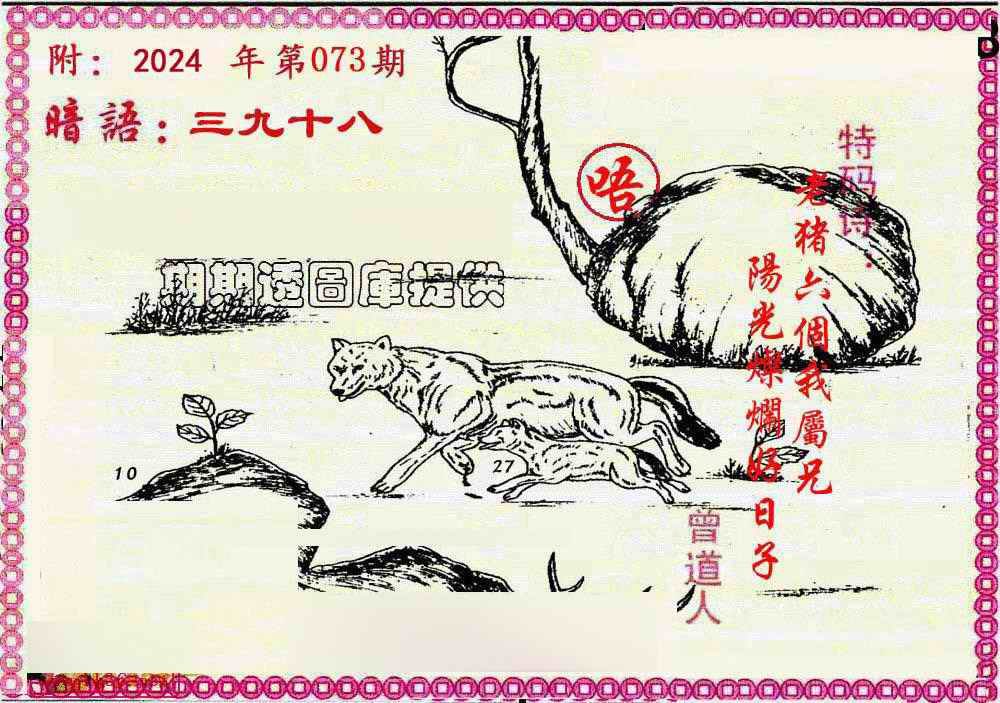 附：2024 年第073期
暗語：三九十八
唔
特码诗：
老猪六個我屬兄
陽光燦爛好日子
期期透圖庫提供
10
27
曾道人